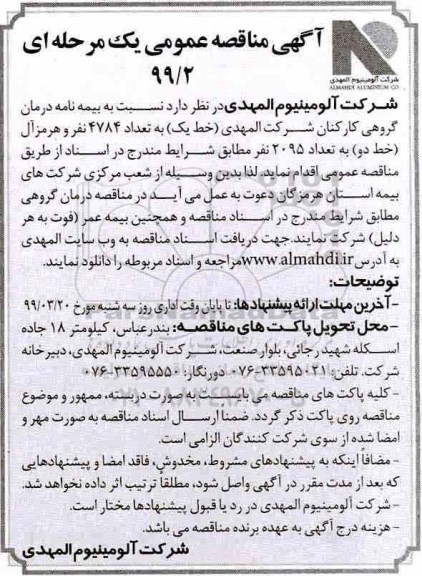 آگهی مناقصه عمومی یک مرحله ای
۹۹/۲
شرکت آلومینیوم المهدی
ALMAHDI ALUMINIUM CO
شرکت آلومینیوم المهدی در نظر دارد نسبت به بیمه نامه درمان
گروهی کارکنان شرکت المهدی (خط یک) به تعداد ۴۷۸۴ نفر و هرمزآل
(خط دو) به تعداد ۲۰۹۵ نفر مطابق شرایط مندرج در اسناد از طریق
مناقصه عمومی اقدام نماید. لذا بدین وسیله از شعب مرکزی شرکت های
بیمه استان هرمزگان دعوت به عمل می آید در مناقصه درمان گروهی
مطابق شرایط مندرج در اسناد مناقصه و همچنین بیمه عمر (فوت به هر
دلیل) شرکت نمایند. جهت دریافت اسناد مناقصه به وب سایت المهدی
به آدرس www.almahdi.ir مراجعه و اسناد مربوطه را دانلود نمایند.
توضیحات:
-آخرین مهلت ارائه پیشنهادها: تا پایان وقت اداری روز سه شنبه مورخ ۹۹/۰۳/۲۰
- محل تحویل پاکت های مناقصه: بندرعباس، کیلومتر ۱۸ جاده
اسکله شهید رجائی، بلوار صنعت، شرکت آلومینیوم المهدی، دبیرخانه
شرکت. تلفن: ۳۳۵۹۵۰۲۱-۰۷۶ دورنگار: ۳۳۵۹۵۵۵۰-۰۷۶
- کلیه پاکت های مناقصه می بایست به صورت دربسته، ممهور و موضوع
مناقصه روی پاکت ذکر گردد. ضمنا ارسال اسناد مناقصه به صورت مهر و
امضا شده از سوی شرکت کنندگان الزامی است.
- مضافاً اینکه به پیشنهادهای مشروط، مخدوش، فاقد امضا و پیشنهادهایی
که بعد از مدت مقرر در آگهی واصل شود، مطلقاً ترتیب اثر داده نخواهد شد.
- شرکت آلومینیوم المهدی در رد یا قبول پیشنهادها مختار است.
- هزینه درج آگهی به عهده برنده مناقصه می باشد.
شرکت آلومینیوم المهدی